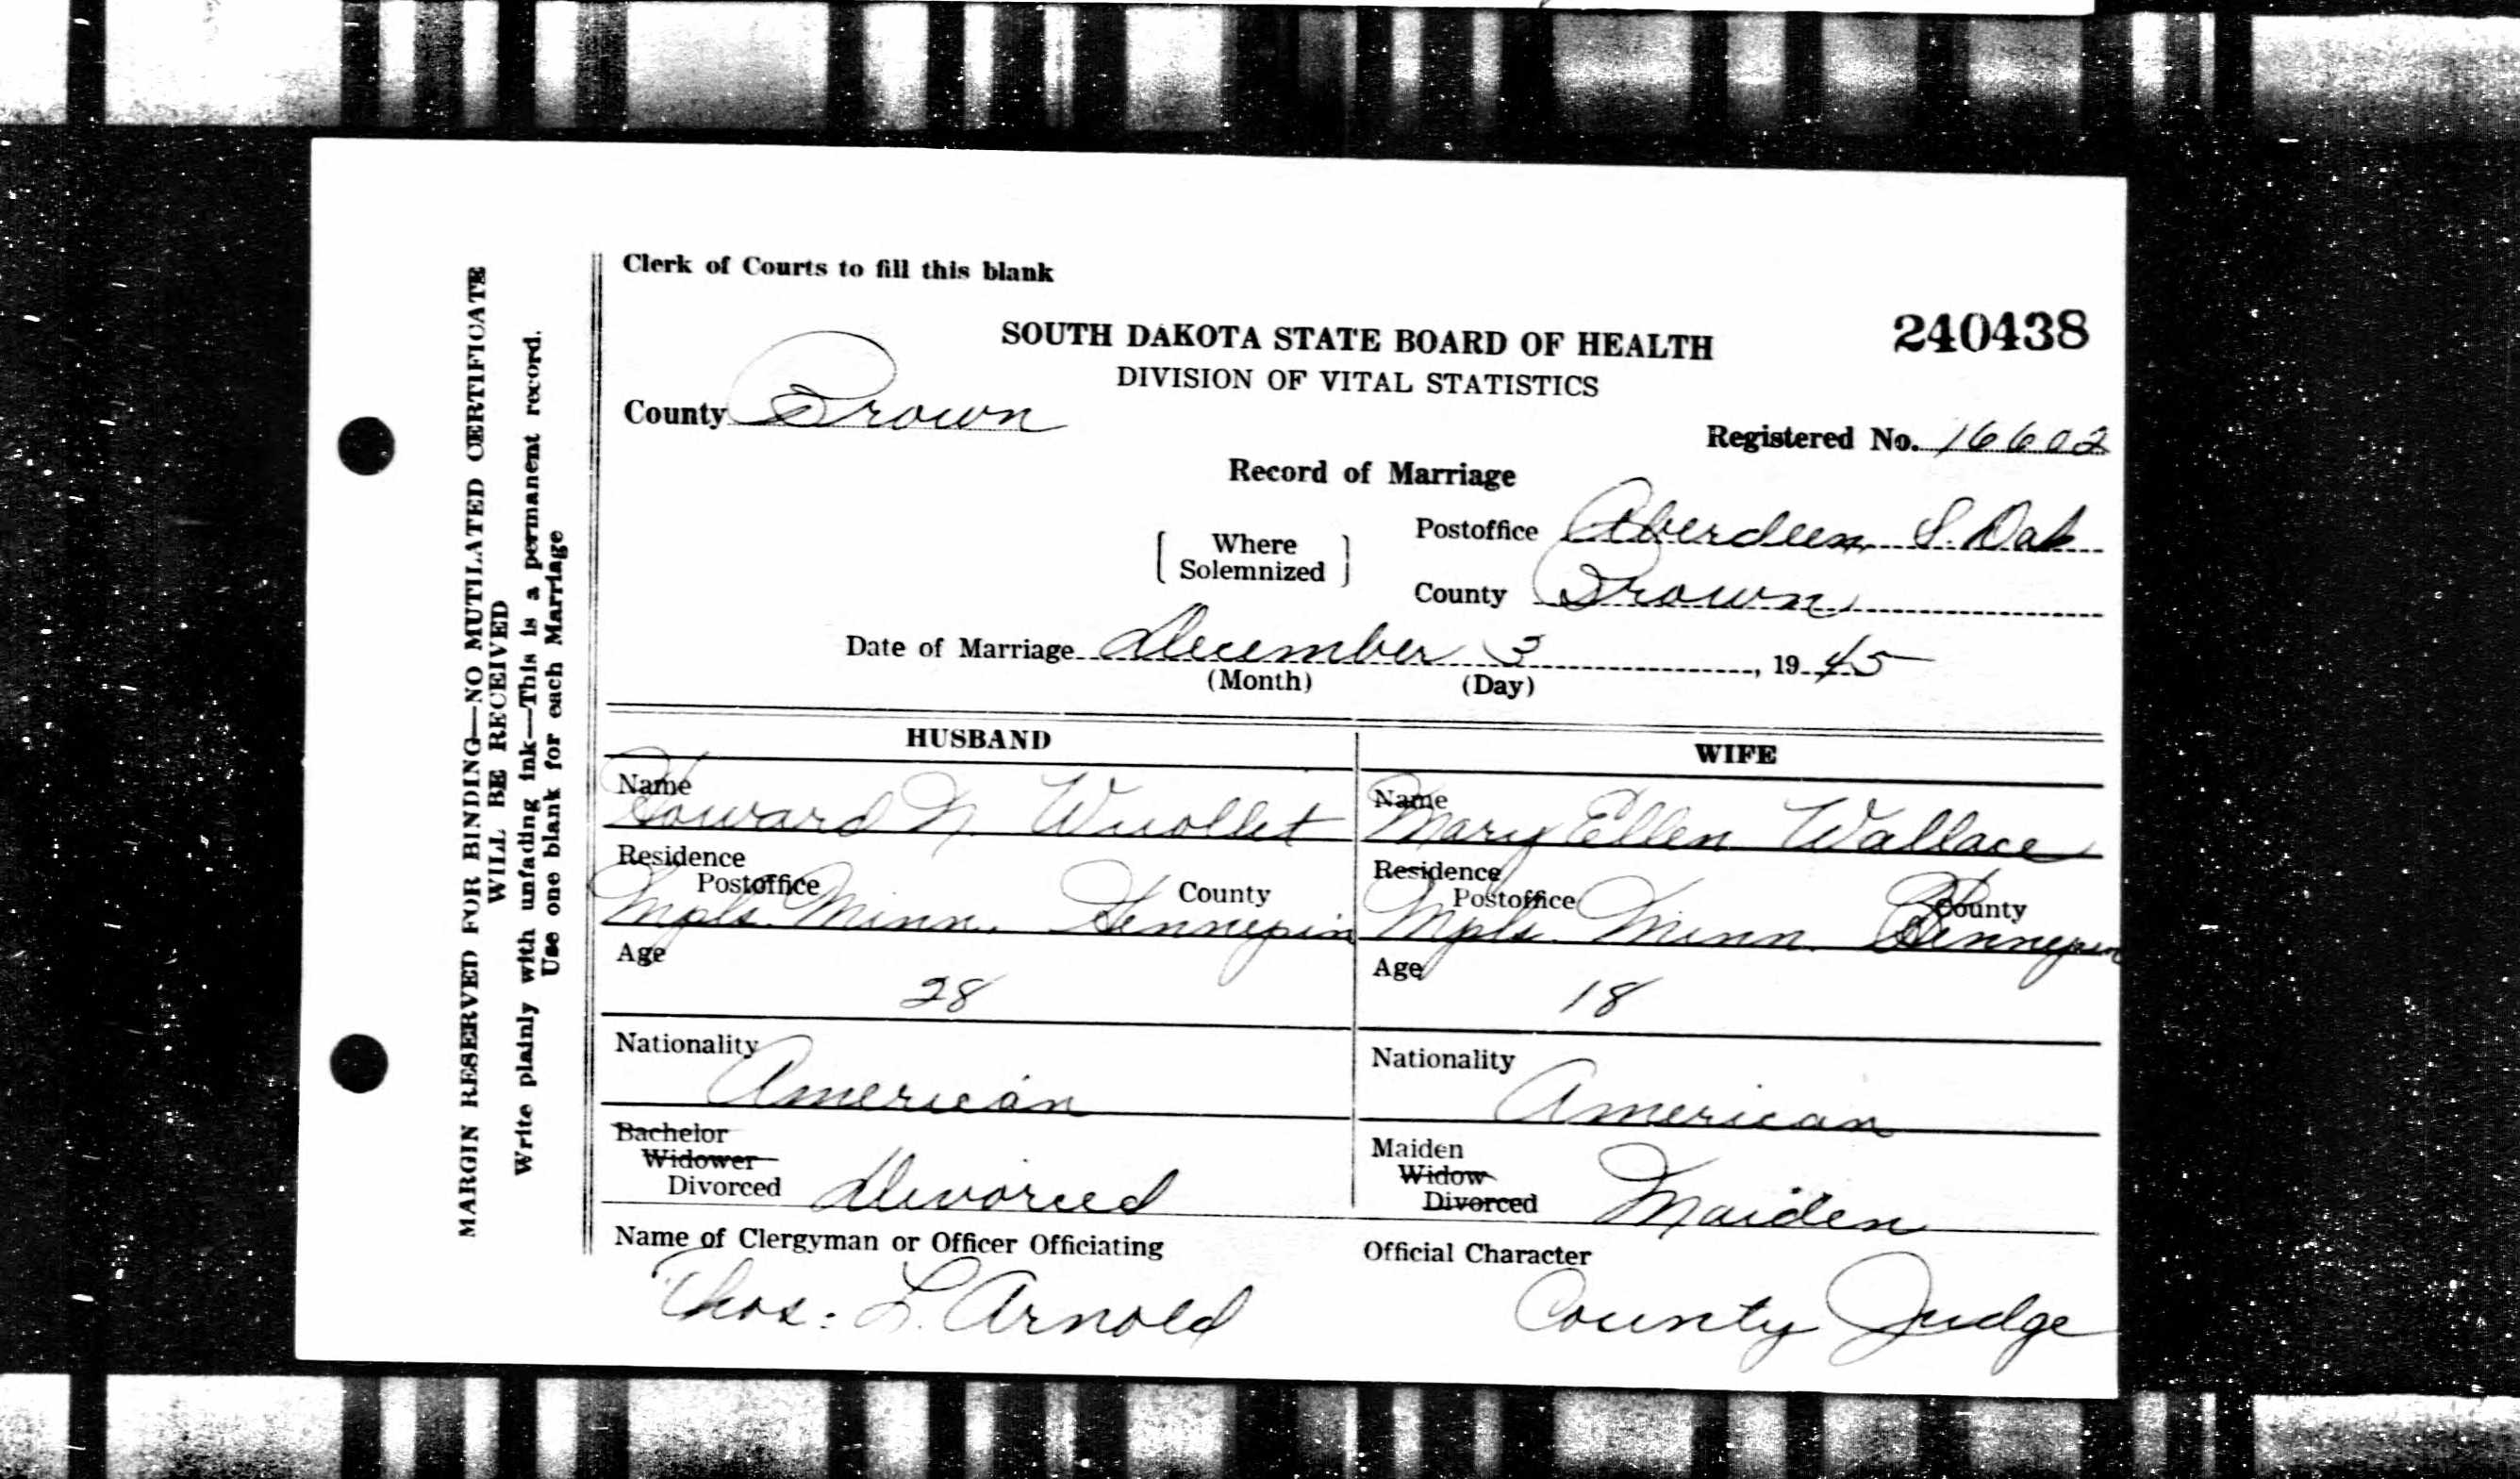 Clerk of Courts to fill this blank
SOUTH DAKOTA STATE BOARD OF HEALTH
240438
DIVISION OF VITAL STATISTICS
County Brown
Registered No. 16602
Record of Marriage
Where Solemnized
Postoffice Aberdeen S. Dak
County Brown
Date of Marriage December 3, 1945
(Month) (Day)
HUSBAND
WIFE
Name
Howard N. Wuollet
Name
Mary Ellen Wallace
Residence
Postoffice County
Mpls. Minn. Hennepin
Residence
Postoffice County
Mpls. Minn. Hennepin
Age
28
Age
18
Nationality
American
Nationality
American
Bachelor
Widower
Divorced Divorced
Maiden
Widow
Divorced Maiden
Name of Clergyman or Officer Officiating
Thos. L. Arnold
Official Character
County Judge
MARGIN RESERVED FOR BINDING—NO MUTILATED CERTIFICATE
WILL BE RECEIVED
Write plainly with unfading ink—This is a permanent record.
Use one blank for each Marriage